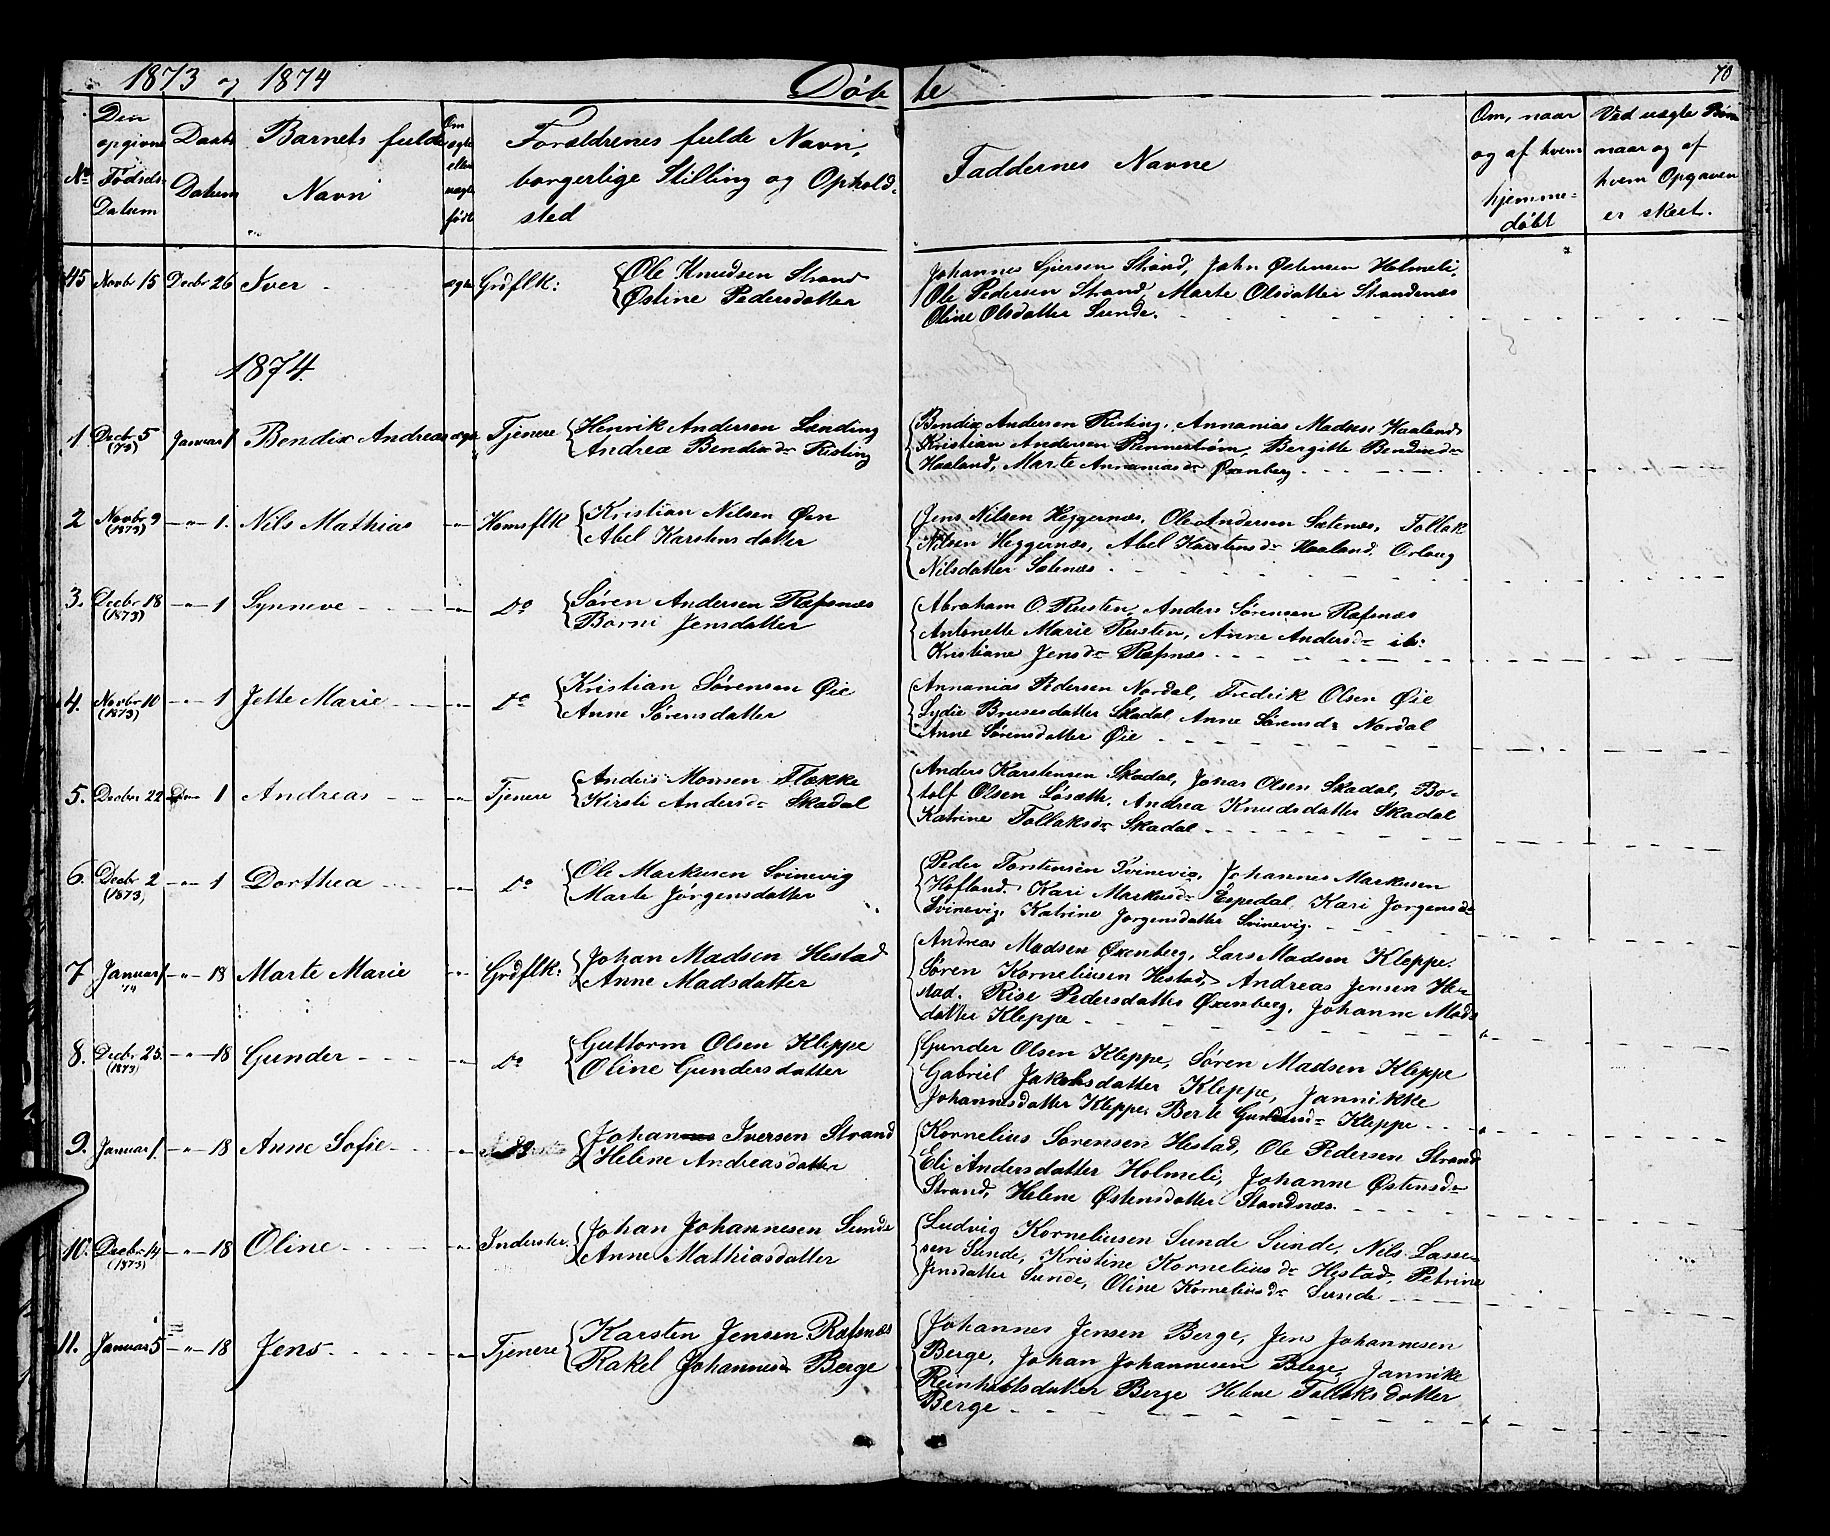 1873 og 1874 Døbte 70
No Den opgivne Fødsels-Datum Daabs Datum Barnets fulde Navn Om ægte eller uægte født Forældrenes fulde Navn, borgerlige Stilling og Opholdsted Faddernes Navne Om, naar og af hvem hjemmedøbt Ved uægte Børn naar og af hvem Opgaven er skeet.
45 Novbr 15 Decbr 26 Iver ægte Grdflk: Ole Knudsen Strand
Østine Pedersdatter
Johannes Sjursen Strand, John Østensen Holmeli,
Ole Pedersen Strand, Marte Olsdatter Strandenæs
Oline Olsdatter Sunde.
1874.
1 Decbr 5 (73) Januar 1 Bendix Andreas ægte Tjenere Henrik Andersen Lending
Andrea Bendixdr Risting
Bendix Andersen Risting, Annanias Madsen Haaland,
Kristian Andersen Rennestrøm, Bergitte Bendixdr
Haaland, Marte Annaniasdr Øxenberg
2 Novbr 9 (1873) -"- 1. Nils Mathias -"- Huusflk Kristian Nilsen Øen
Abel Karstensdatter
Jens Nilsen Heggernæs, Ole Andersen Sætenæs, Tollak
Nilsen Heggernæs, Abel Karstensdr Haaland, Orloug
Nilsdatter Sætenæs
3. Decbr 18 (1873) -"- 1 Synneve -"- Do Søren Andersen Ræfsnæs
Barni Jensdatter
Abraham O. Rusten, Anders Sørensen Ræfsnæs
Antonette Marie Rusten, Anne Andersdr ib:
Kristiane Jensdr Ræfsnæs
4. Novbr 10 (1873) -"- 1 Jette Marie -"- Do Kristian Sørensen Øie
Anne Sørensdatter
Annanias Pedersen Nordal, Fredrik Olsen Øie
Lydie Brusesdatter Skadal Anne Sørensdr Nordal
Anne Sørensdatter Øie
5. Decbr 22 1 Andreas -"- Tjenere Anders Monsen Flække
Kirsti Andersdr Skadal
Anders Karstensen Skadal, Jonas Olsen Skadal, Bo-
tolf Olsen Løsæth, Andrea Knudsdatter Skadal
Katrine Tollaksdr Skadal
6. Decbr 2 (1873) -"- 1 Dorthea -"- Do Ole Markusen Svinevig
Marte Jørgensdatter
Peder Torstensen Svinevig, Johannes Markusen
Hofland. Kari Markusdr Espedal, Kari Jørgensdr
Svinevig, Katrine Jørgensdatter Svinevig.
7 Januar 1 74 -"- 18 Marte Marie -"- Grdflk: Johan Madsen Hestad
Anne Madsdatter
Andreas Madsen Øxenberg, Lars Madsen Kleppe.
Søren Kornelius­en Hestad, Andreas Jensen He-
stad. Rise Pedersdatter Øxenberg, Johanne Mads-
datter Kleppe
8. Decbr 25. (1873) -"- 18 Gunder -"- Do Guttorm Olsen Kleppe
Oline Gundersdatter
Gunder Olsen Kleppe, Søren Madsen Kleppe
Gabriel Jakobsdatter Kleppe, Jannikke
Johannesdatter Kleppe, Berte Gundersdr Kleppe
9. Januar 1. -"- 18 Anne Sofie -"- Johannes Iversen Strand
Helene Andreasdatter
Kornelius Sørensen Hestad, Ole Pedersen Strand
Eli Andersdatter Holmeli, Johanne Østensdr
Strand, Helene Østensdatter Standnæs.
10. Decbr 14 (1873) -"- 18 Oline -"- Inderster. Johan Johannesen Sunde
Anne Mathiasdatter
Ludvig Korneliusen Sunde Sunde, Nils Lasse-
sen Sunde, Kristine Korneliusdr Hestad, Petrine
Jensdatter Sunde, Oline Korneliusdr Sunde
11. Januar 5 -"- 18 Jens -"- Tjenere Karsten Jensen Ræfsnæs
Rakel Johannesd Berge
Johannes Jensen Berge, Jens Johannesen
Berge, Johan Johannesen Berge, Jannike
Reinholtsdatter Berge Helene Tollaksdatter
Berge